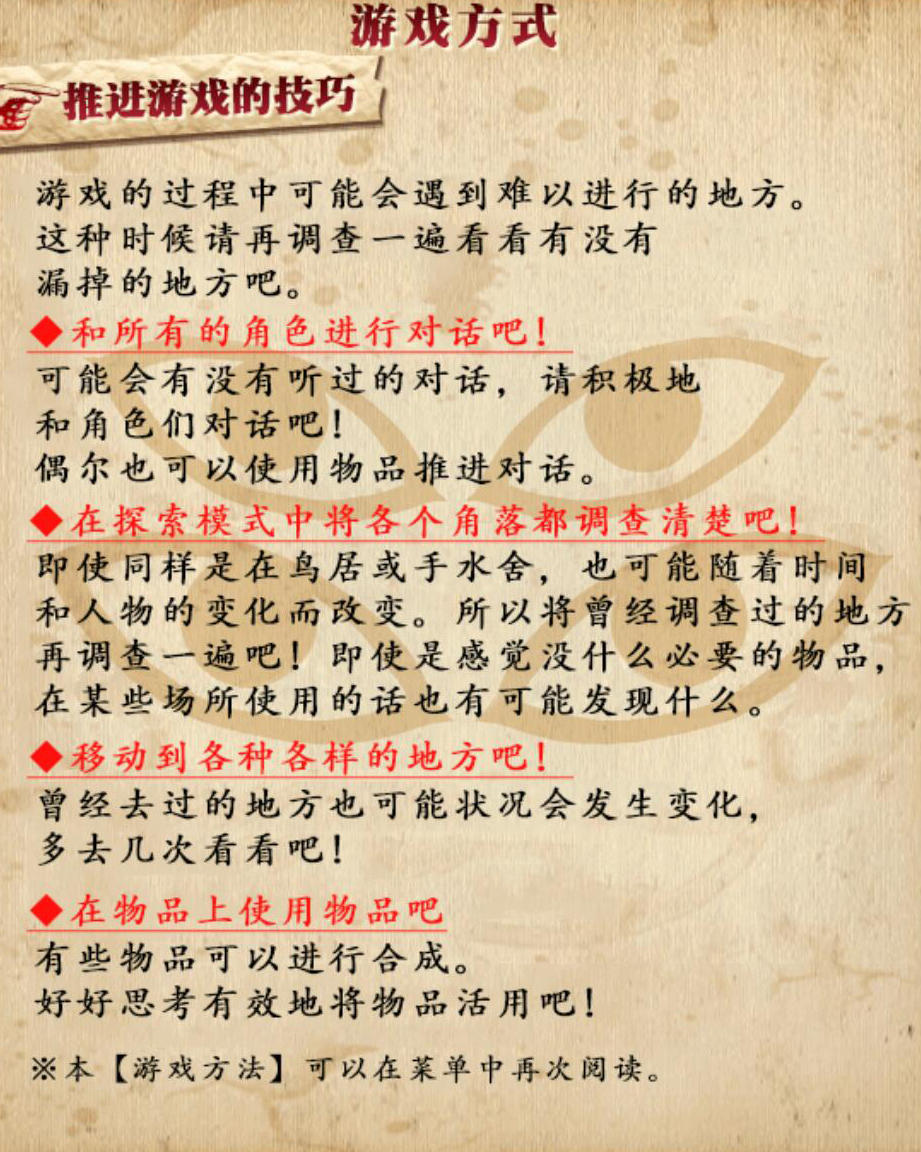 游戏方式
推进游戏的技巧
游戏的过程中可能会遇到难以进行的地方。
这种时候请再调查一遍看看有没有
漏掉的地方吧。
◆和所有的角色进行对话吧！
可能会有没有听过的对话，请积极地
和角色们对话吧！
偶尔也可以使用物品推进对话。
◆在探索模式中将各个角落都调查清楚吧！
即使同样是在鸟居或手水舍，也可能随着时间
和人物的变化而改变。所以将曾经调查过的地方
再调查一遍吧！即使是感觉没什么必要的物品，
在某些场所使用的话也有可能发现什么。
◆移动到各种各样的地方吧！
曾经去过的地方也可能状况会发生变化，
多去几次看看吧！
◆在物品上使用物品吧
有些物品可以进行合成。
好好思考有效地将物品活用吧！
※本【游戏方法】可以在菜单中再次阅读。